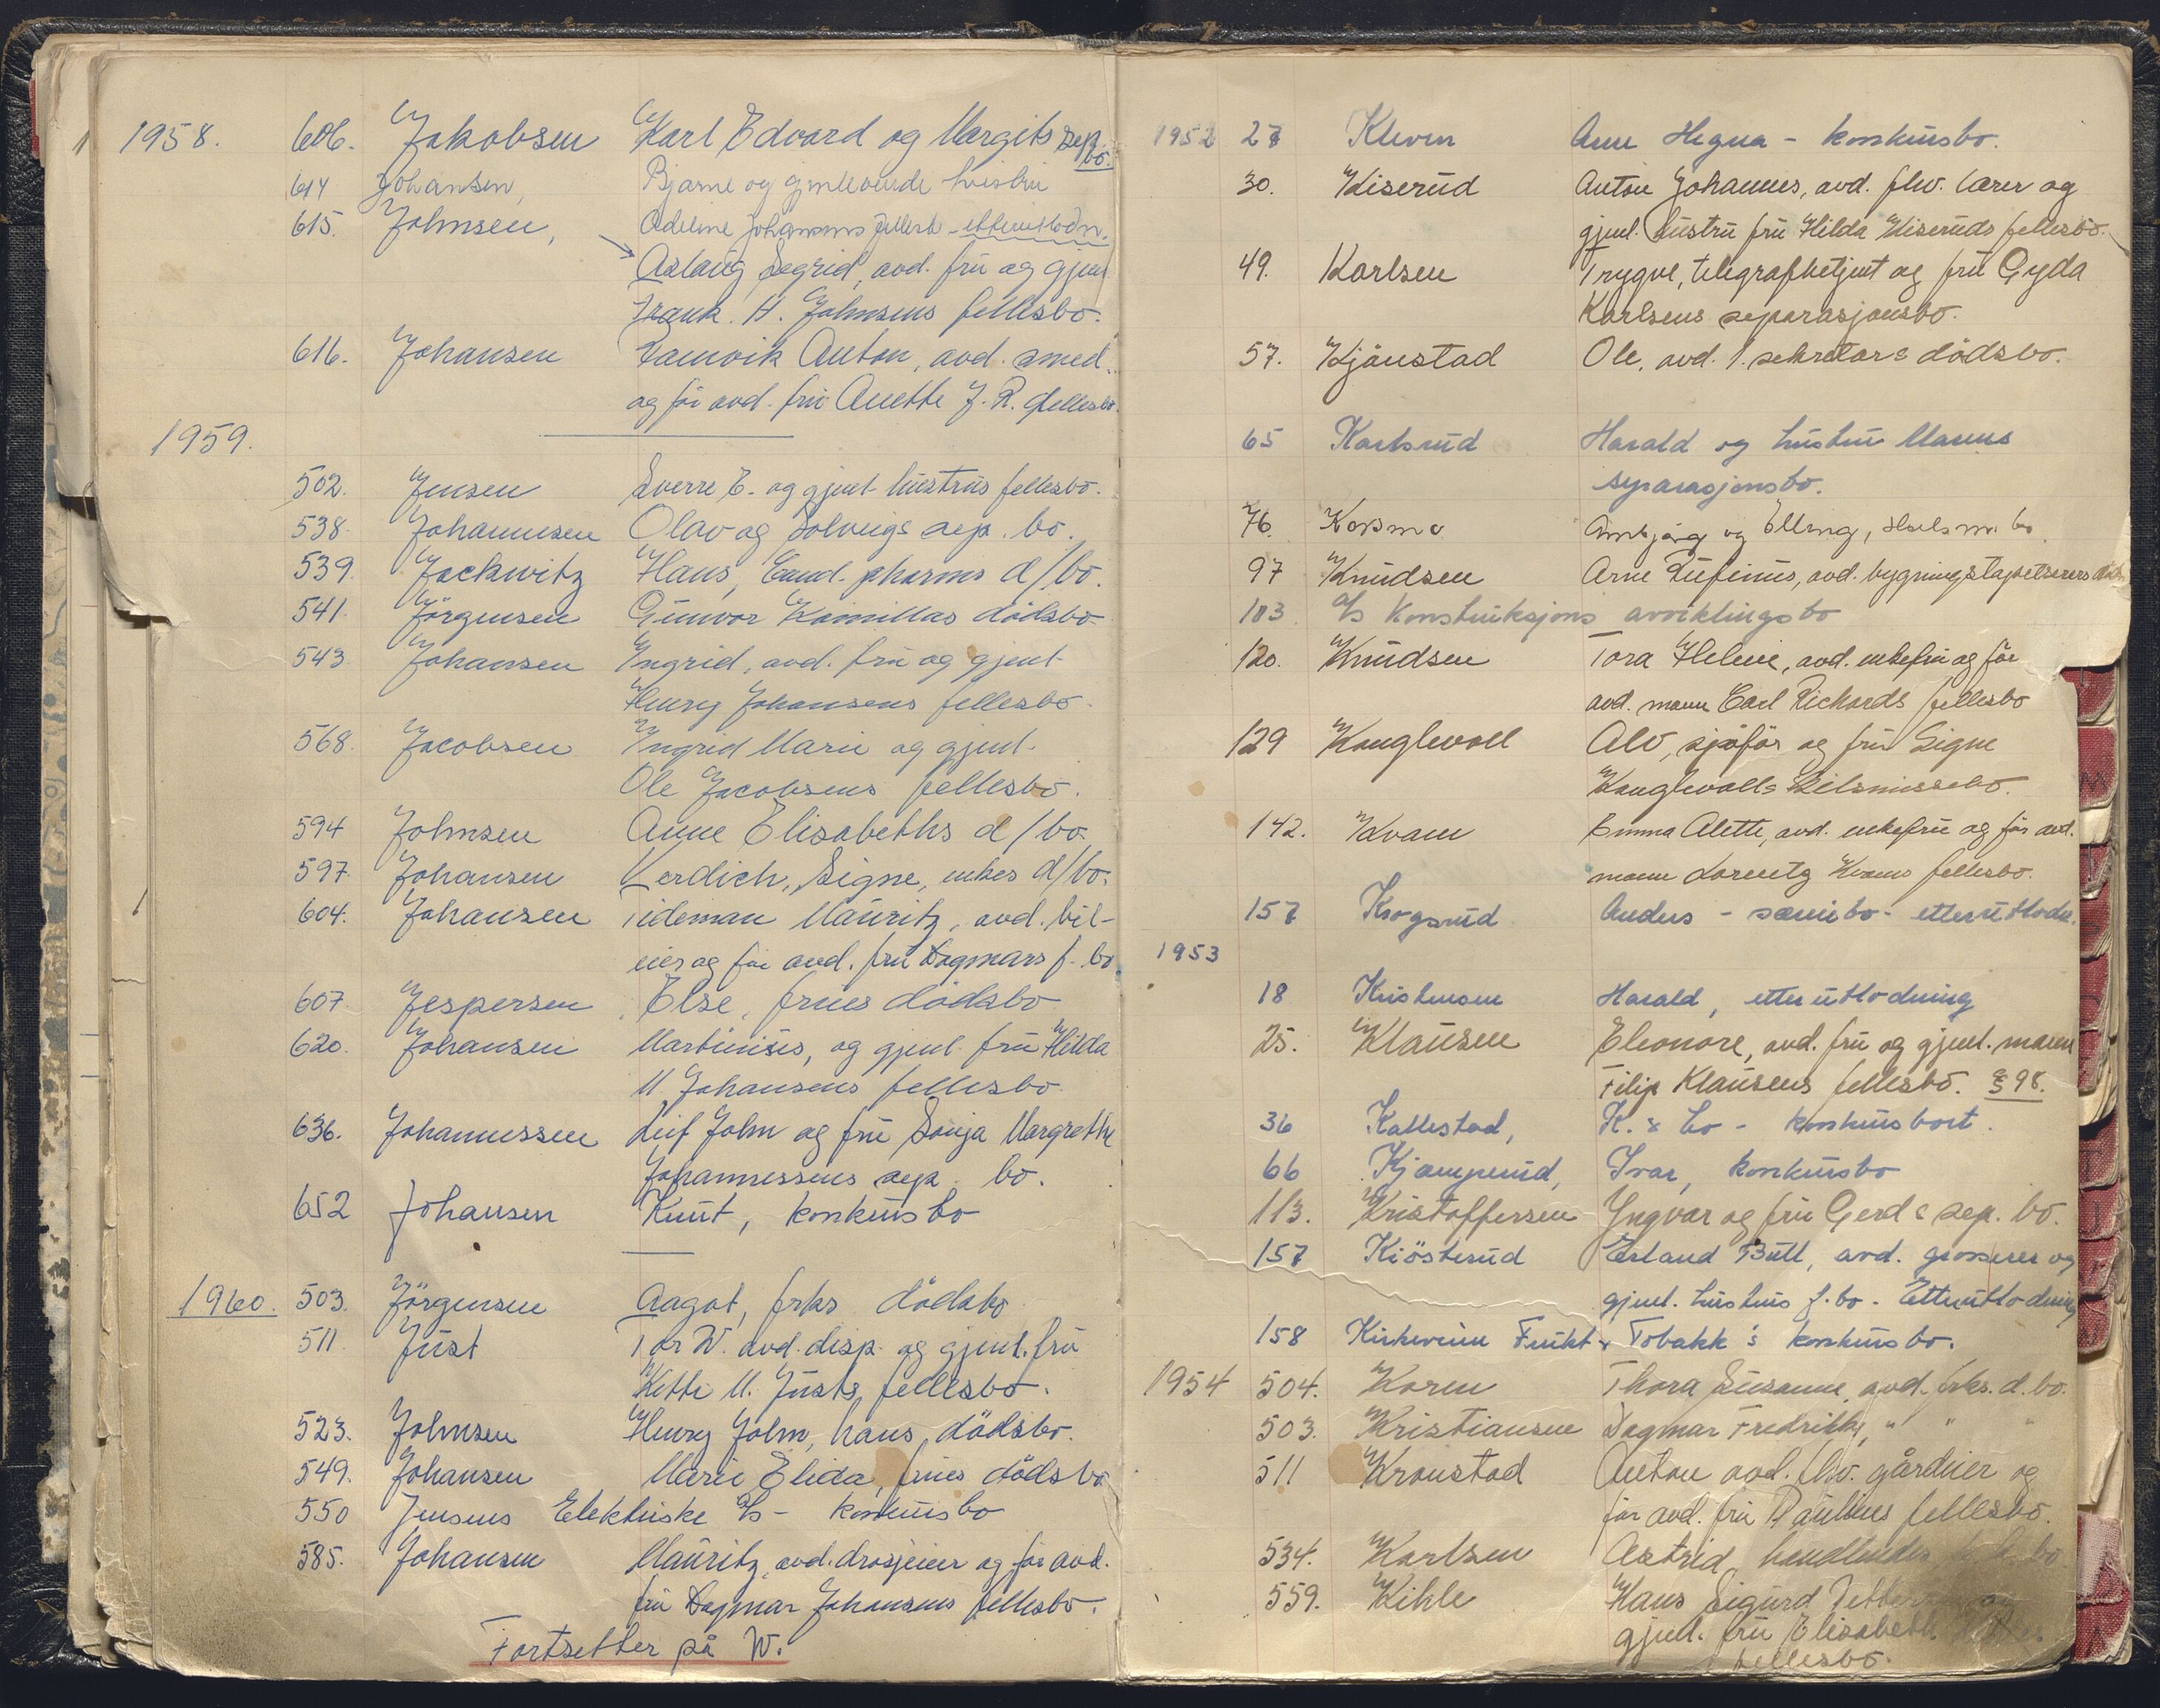 1958. 606. Jakobsen Karl Edvard og Margits sep. bo.
614 Johansen, Bjarne og gjenlevende hustru
615. Johnsen, Adeline Johansens fellesb - etterutlodn.
Aslaug Segrid, avd. fru og gjenl.
Frank. H. Johnsens fellesbo.
616. Johansen Ramvik Anton, avd. smed.
og før avd. fru Anette J. R. fellesbo.
1959.
502. Jensen Sverre E. og gjenl. hustrus fellesbo.
538. Johannesen Olav og Solveigs sep. bo.
539. Jackwitz Hans, Cand. pharms d/bo.
541. Jörgensen Gunvor Kamillas dödsbo
543 Johansen Ingrid, avd. fru og gjenl.
Henry Johansens fellesbo.
568. Jacobsen Ingrid Marie og gjenl.
Ole Jacobsens fellesbo.
594 Johnsen Anne Elisabeths d/bo.
597. Johansen Verdich, Signe, enkes d/bo.
604. Johansen Tideman Mauritz, avd. bil-
eier og før avd. fru Dagmars f. bo
607. Jespersen, Else, frues dödsbo
620. Johansen Martinius, og gjenl. fru Hilda
M. Johansens fellesbo.
636. Johannessen Leif John og fru Sonja Margrethe
Johannessens sep. bo.
652 Johansen Knut, konkursbo
1960. 503. Jörgensen Aagot, frks dödsbo
511. Just Tor W. avd. disp. og gjenl. fru
Kitti M. Justs fellesbo.
523. Johnsen Henry John, hans dödsbo.
549. Johansen Marie Elida, frues dödsbo
550 Jensens Elektriske A/S - konkursbo
585. Johansen Mauritz, avd. drosjeeier og før avd.
fru Dagmar Johansens fellesbo.
Fortsetter på W.
1952 27 Kleven Arne Hegna - konkursbo.
30. Kiserud Anton Johannes, avd. fhv. lærer og
gjenl. hustru fru Hilda Kiseruds fellesbo.
49. Karlsen Trygve, telegrafbetjent og fru Gyda
Karlsens separasjonsbo.
57. Kjönstad Ole, avd. 1. sekretærs dödsbo.
65 Karlsrud Harald og hustru Marens
separasjonsbo.
76. Kosmo og Elling, skilsm. bo
97 Knudsen Arne Rufinus, avd. bygningstapetserers
103 A/S Konstruksjons avviklingsbo
120. Knudsen Tora Helene, avd. enkefru og før
avd. mann Carl Richards fellesbo
129 Konglevoll Alv, sjåfør og fru Signe
Konglevolls skilsmissebo.
142. Kvam Emma Alette, avd. enkefru og før avd.
mann Lorentz Kvams fellesbo.
157 Krogsrud Anders - særeiebo - etterutlodn.
1953
18 Kristensen Harald, etterutlodning
25. Klausen Eleonore, avd. fru og gjenl. mann
Filip Klausens fellesbo. § 98.
36 Kallestad, K. & Co - konkursbort.
66 Kjæmperud, Ivar, konkursbo
113. Kristoffersen Yngvar og fru Gerds sep. bo.
157 Kiösterud Erland Bull, avd. grosserer og
gjenl. hustrus f. bo. - Etterutlodning
158 Kirkeveien Frukt & Tobakk's konkursbo.
1954 504. Koren Thora Susanne, avd. frks. d. bo.
503. Kristiansen Dagmar Fredrikke, " " "
511 Kronstad Anton avd. fhv. gårdeier og
før avd. fru Paulines fellesbo.
534. Karlsen Astrid, handlendes bo
559. Kihle Hans Sigurd
gjenl. fru Elisabeth
fellesbo.